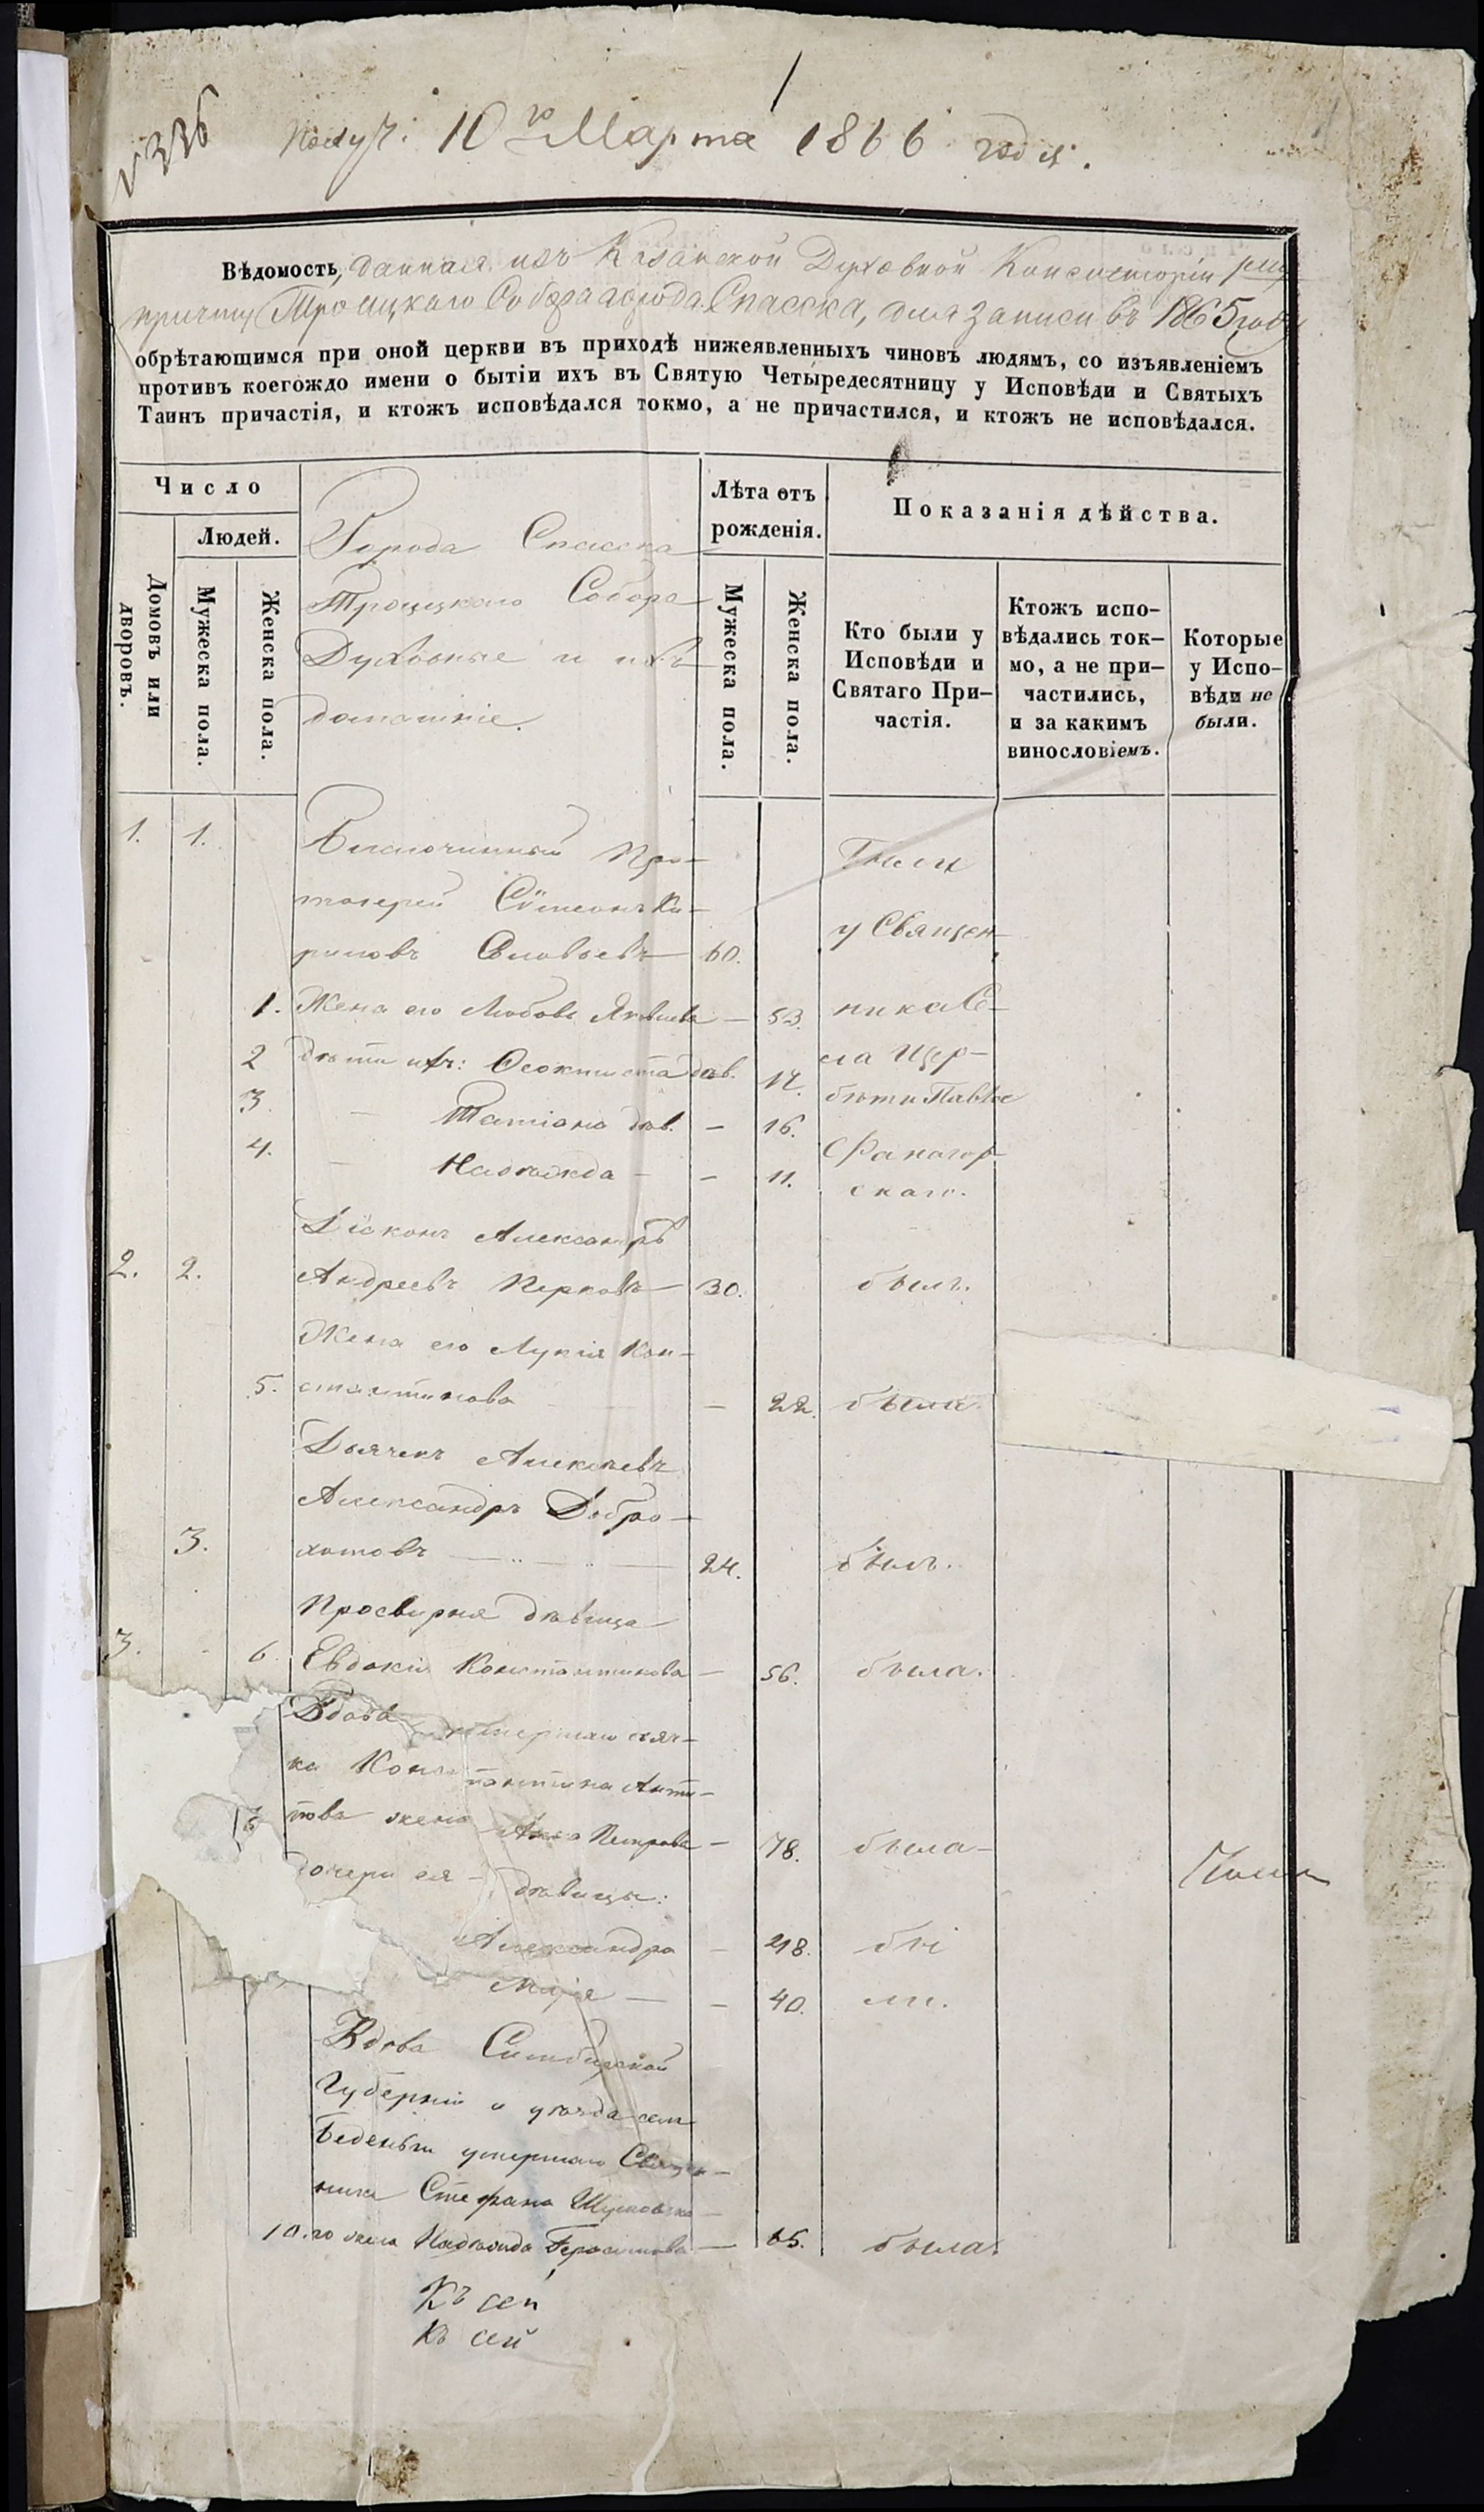 1
№ 336
Получ: 10го Марта 1866 года.
Вѣдомость, данная изъ Казанской Духовной Консисторіи
причту Троицкаго Собора города Спасска, для записи въ 1865 году
обрѣтающимся при оной церкви въ приходѣ нижеявленныхъ чиновъ людямъ, со изъявленіемъ
противъ коегождо имени о бытіи ихъ въ Святую Четыредесятницу у Исповѣди и Святыхъ
Таинъ причастія, и ктожъ исповѣдался токмо, а не причастился, и ктожъ не исповѣдался.
Число
Домовъ или дворовъ.
Людей.
Мужеска пола.
Женска пола.
Города Спасска
Троицкаго Собора
Духовные и ихъ
домашніе.
Лѣта отъ рожденія.
Мужеска пола.
Женска пола.
Показанія дѣйства.
Кто были у Исповѣди и Святаго При-частія.
Ктожъ испо-вѣдались ток-мо, а не при-частились, и за какимъ винословіемъ.
Которые у Испо-вѣди не были.
1. 1. Благочинный Про-
тоіерей Сѵмеонъ Ки-
риловъ Соловьевъ 60.
Были
у Священ-
1. Жена его Любовь Яковлева — 53.
ника Се-
2 дѣти ихъ: Ѳеоктиста дѣв. 17.
ла Щер-
3. — Татіана дѣв. — 16.
бети Павла
4. — Надежда — — 11.
Фанагор-
скаго.
Діаконъ Александръ
2. 2. Андреевъ Перковъ 30. былъ.
Жена его Лукія Кон-
5. стантинова — 22. была.
Дьячекъ Алексѣевъ
Александръ Добро-
3. хотовъ 24. былъ.
Просвирня дѣвица
3. 6. Евдокія Константинова — 56. была.
Вдова умершаго дьяч-
ка Константина Анти-
пова жена Анна Петрова — 78. была
дочери ея — дѣвицы:
Александра — 48. бы
Марія — — 40. ли.
Вдова Симбирской
Губерніи и уѣзда села
Беденьги умершаго Священ-
ника Стефана
10. го жена Надежда Герасимова — 65. была.
Къ сей
Къ сей